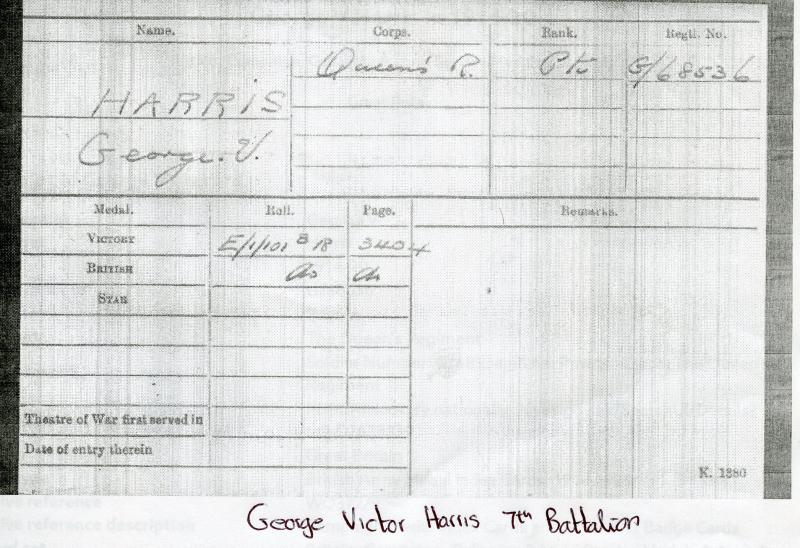 Name. Corps. Rank. Regtl. No.
Queen's R. Pte G/68536
HARRIS
George. V.
Medal. Roll. Page. Remarks.
VICTORY E/1/101 B 18 3404
BRITISH do do
STAR
Theatre of War first served in
Date of entry therein
K. 1380
George Victor Harris 7th Battalion